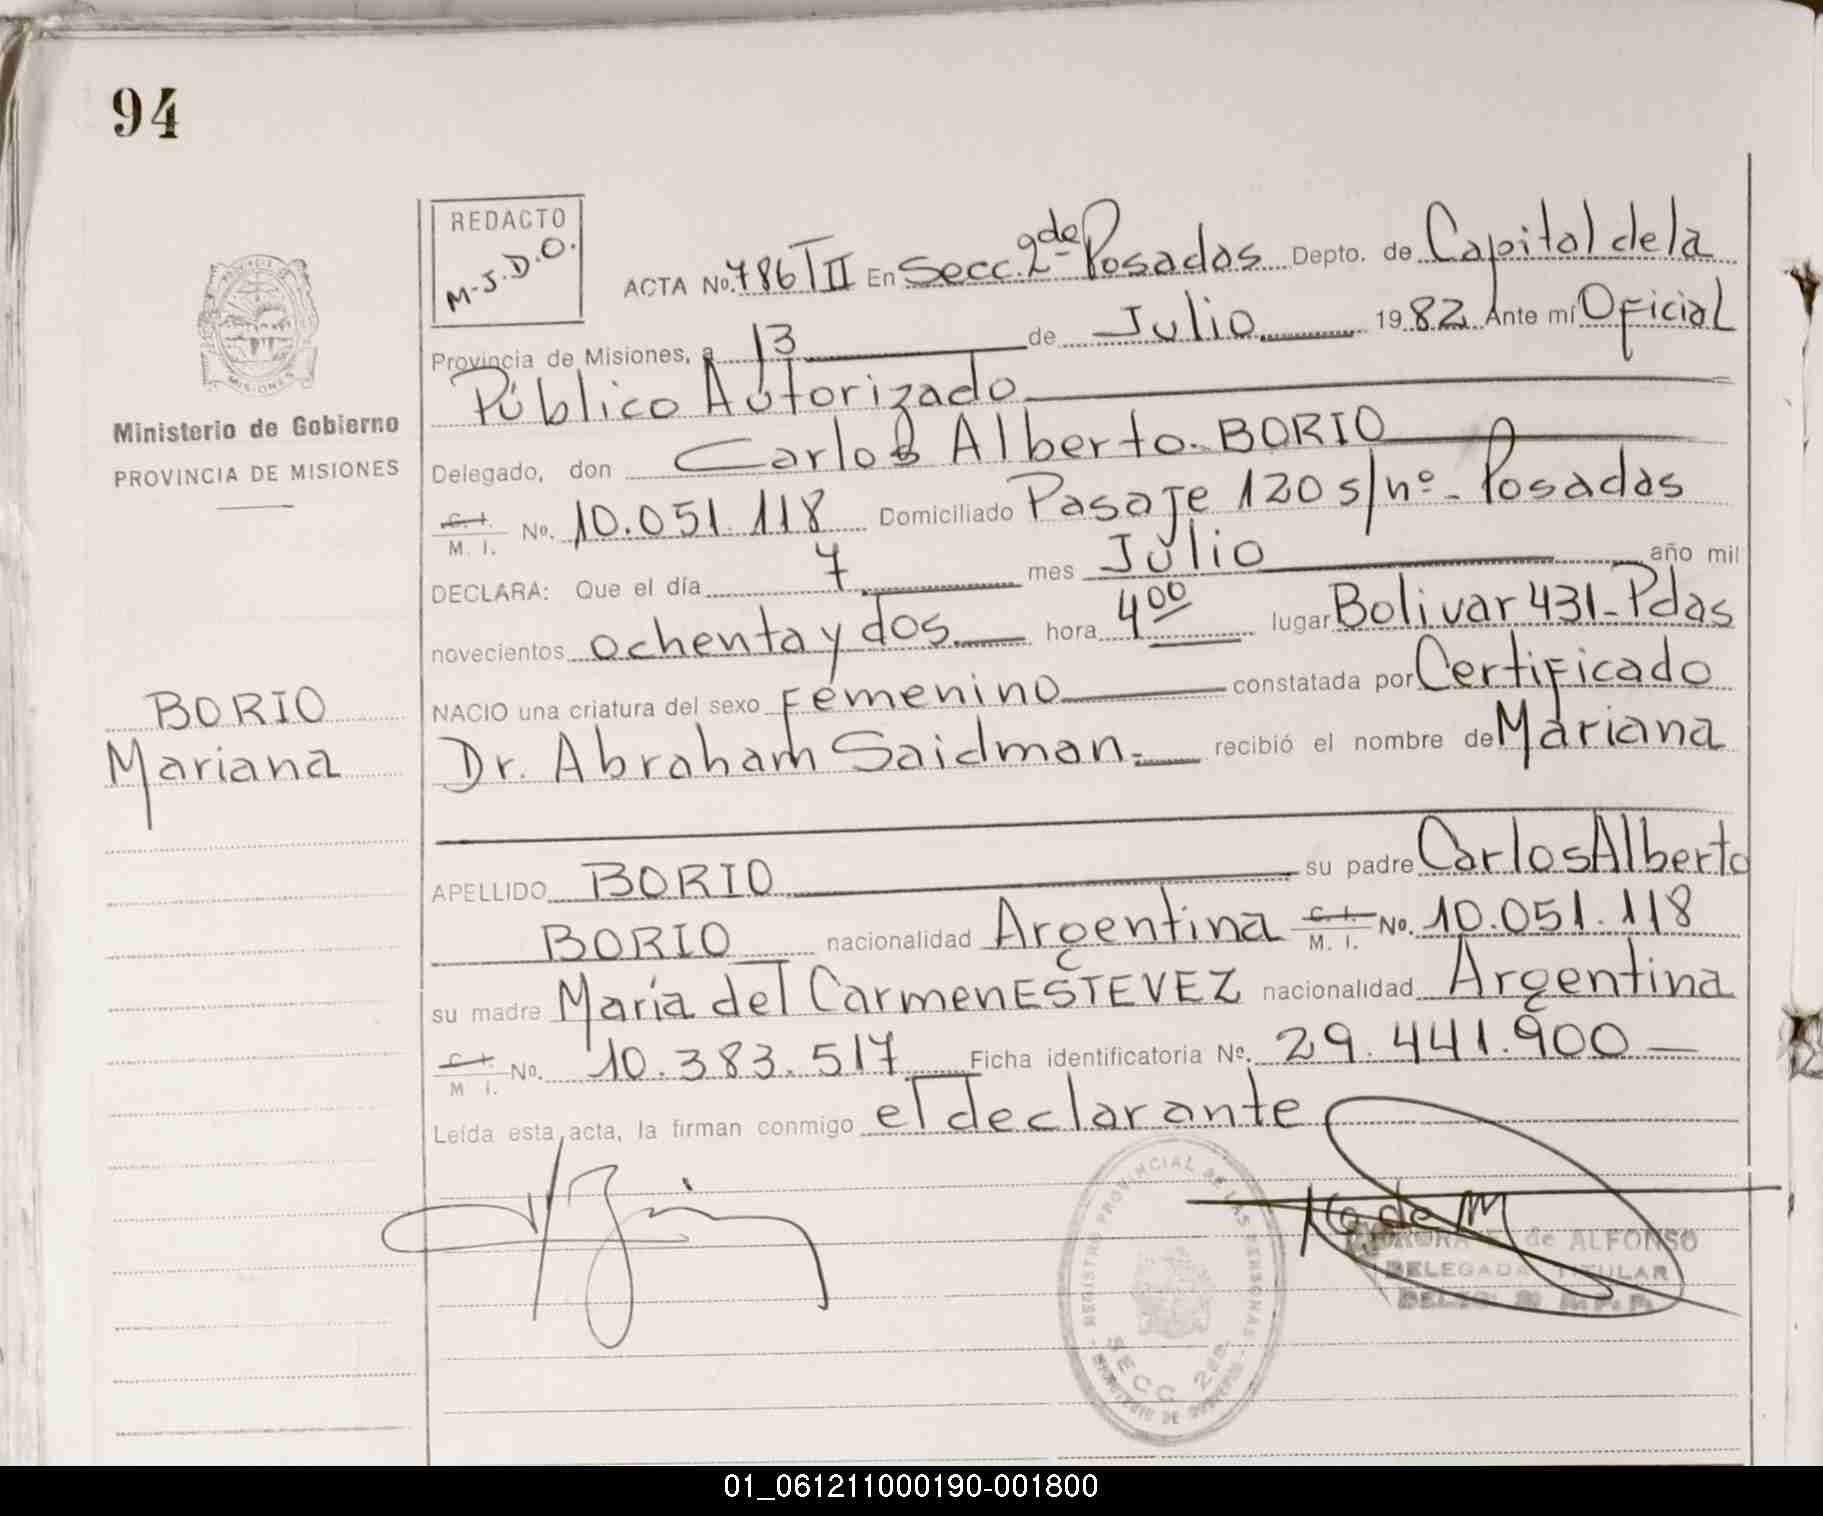 94
REDACTO
M-S.D.O.
ACTA No. 786 T II En Secc. 2da de Posadas Depto. de Capital de la
Provincia de Misiones, a 13 de Julio 1982 Ante mí Oficial
Público Autorizado
Delegado, don Carlos Alberto. BORIO
C. I. / M. I. No. 10.051.118 Domiciliado Pasaje 120 s/nº - Posadas
DECLARA: Que el día 7 mes Julio año mil
novecientos ochenta y dos. hora 4 00 lugar Bolivar 431 - Pdas
NACIO una criatura del sexo Femenino constatada por Certificado
Dr. Abraham Saidman.- recibió el nombre de Mariana
APELLIDO BORIO su padre Carlos Alberto
BORIO nacionalidad Argentina C. I. / M. I. No. 10.051.118
su madre María del Carmen ESTEVEZ nacionalidad Argentina
C. I. / M I. No. 10.383.517 Ficha identificatoria Nº. 29.441.900 —
Leída esta acta, la firman conmigo el declarante
PROVINCIA DE MISIONES
Ministerio de Gobierno
PROVINCIA DE MISIONES
BORIO
Mariana
REGISTRO PROVINCIAL DE LAS PERSONAS
SECC 2da
MINISTERIO DE GOBIERNO
de ALFONSO
DELEGADA TITULAR
01_061211000190-001800